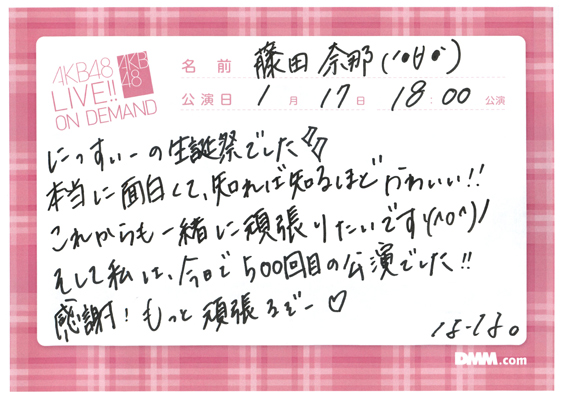 AKB48
LIVE!!
ON DEMAND
AKB
48
名前 藤田奈那(*'∀'*)
公演日 1月17日 18:00 公演
にっすぃーの生誕祭でした
本当に面白くて、知れば知るほどかわいい!!
これからも一緒に頑張りたいです\(^o^)/
そして私は、今日で500回目の公演でした!!
感謝!もっと頑張るぞー♡
DMM.com